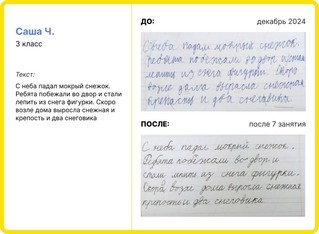 Саша Ч.
3 класс
Текст:
С неба падал мокрый снежок.
Ребята побежали во двор и стали
лепить из снега фигурки. Скоро
возле дома выросла снежная и
крепость и два снеговика
ДО:
декабрь 2024
Снеба падал мокрый снежок.
ребята побежали во двор
из снега фигурки. Скоро
возле дома выросла снежная
и два снеговика
ПОСЛЕ:
после 7 занятия
С неба падал мокрый снежок.
Ребята побежали во двор и
стали лепить из снега фигурки.
Скоро возле дома выросла снежная
крепость и два снеговика